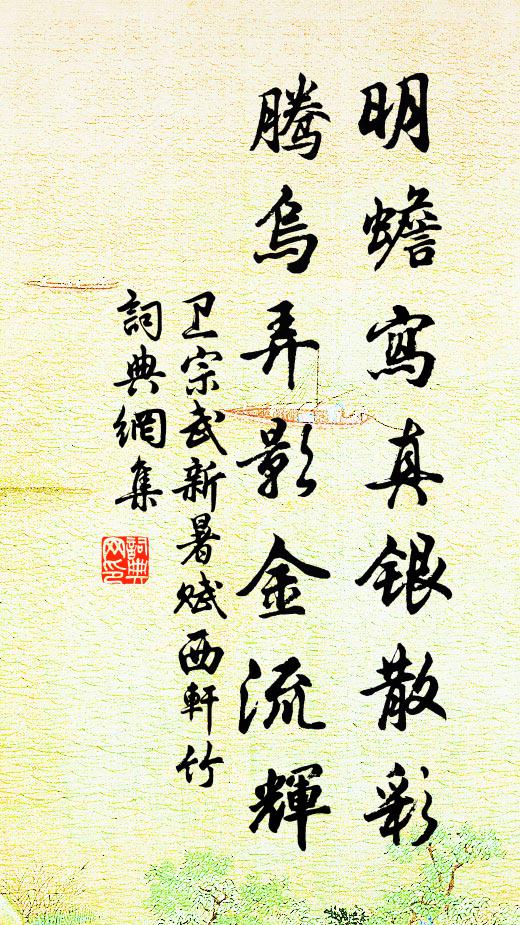 明蟾寫真銀散彩
騰烏弄影金流輝
卫宗武新暑赋西軒竹
詞典網集
詞典网印